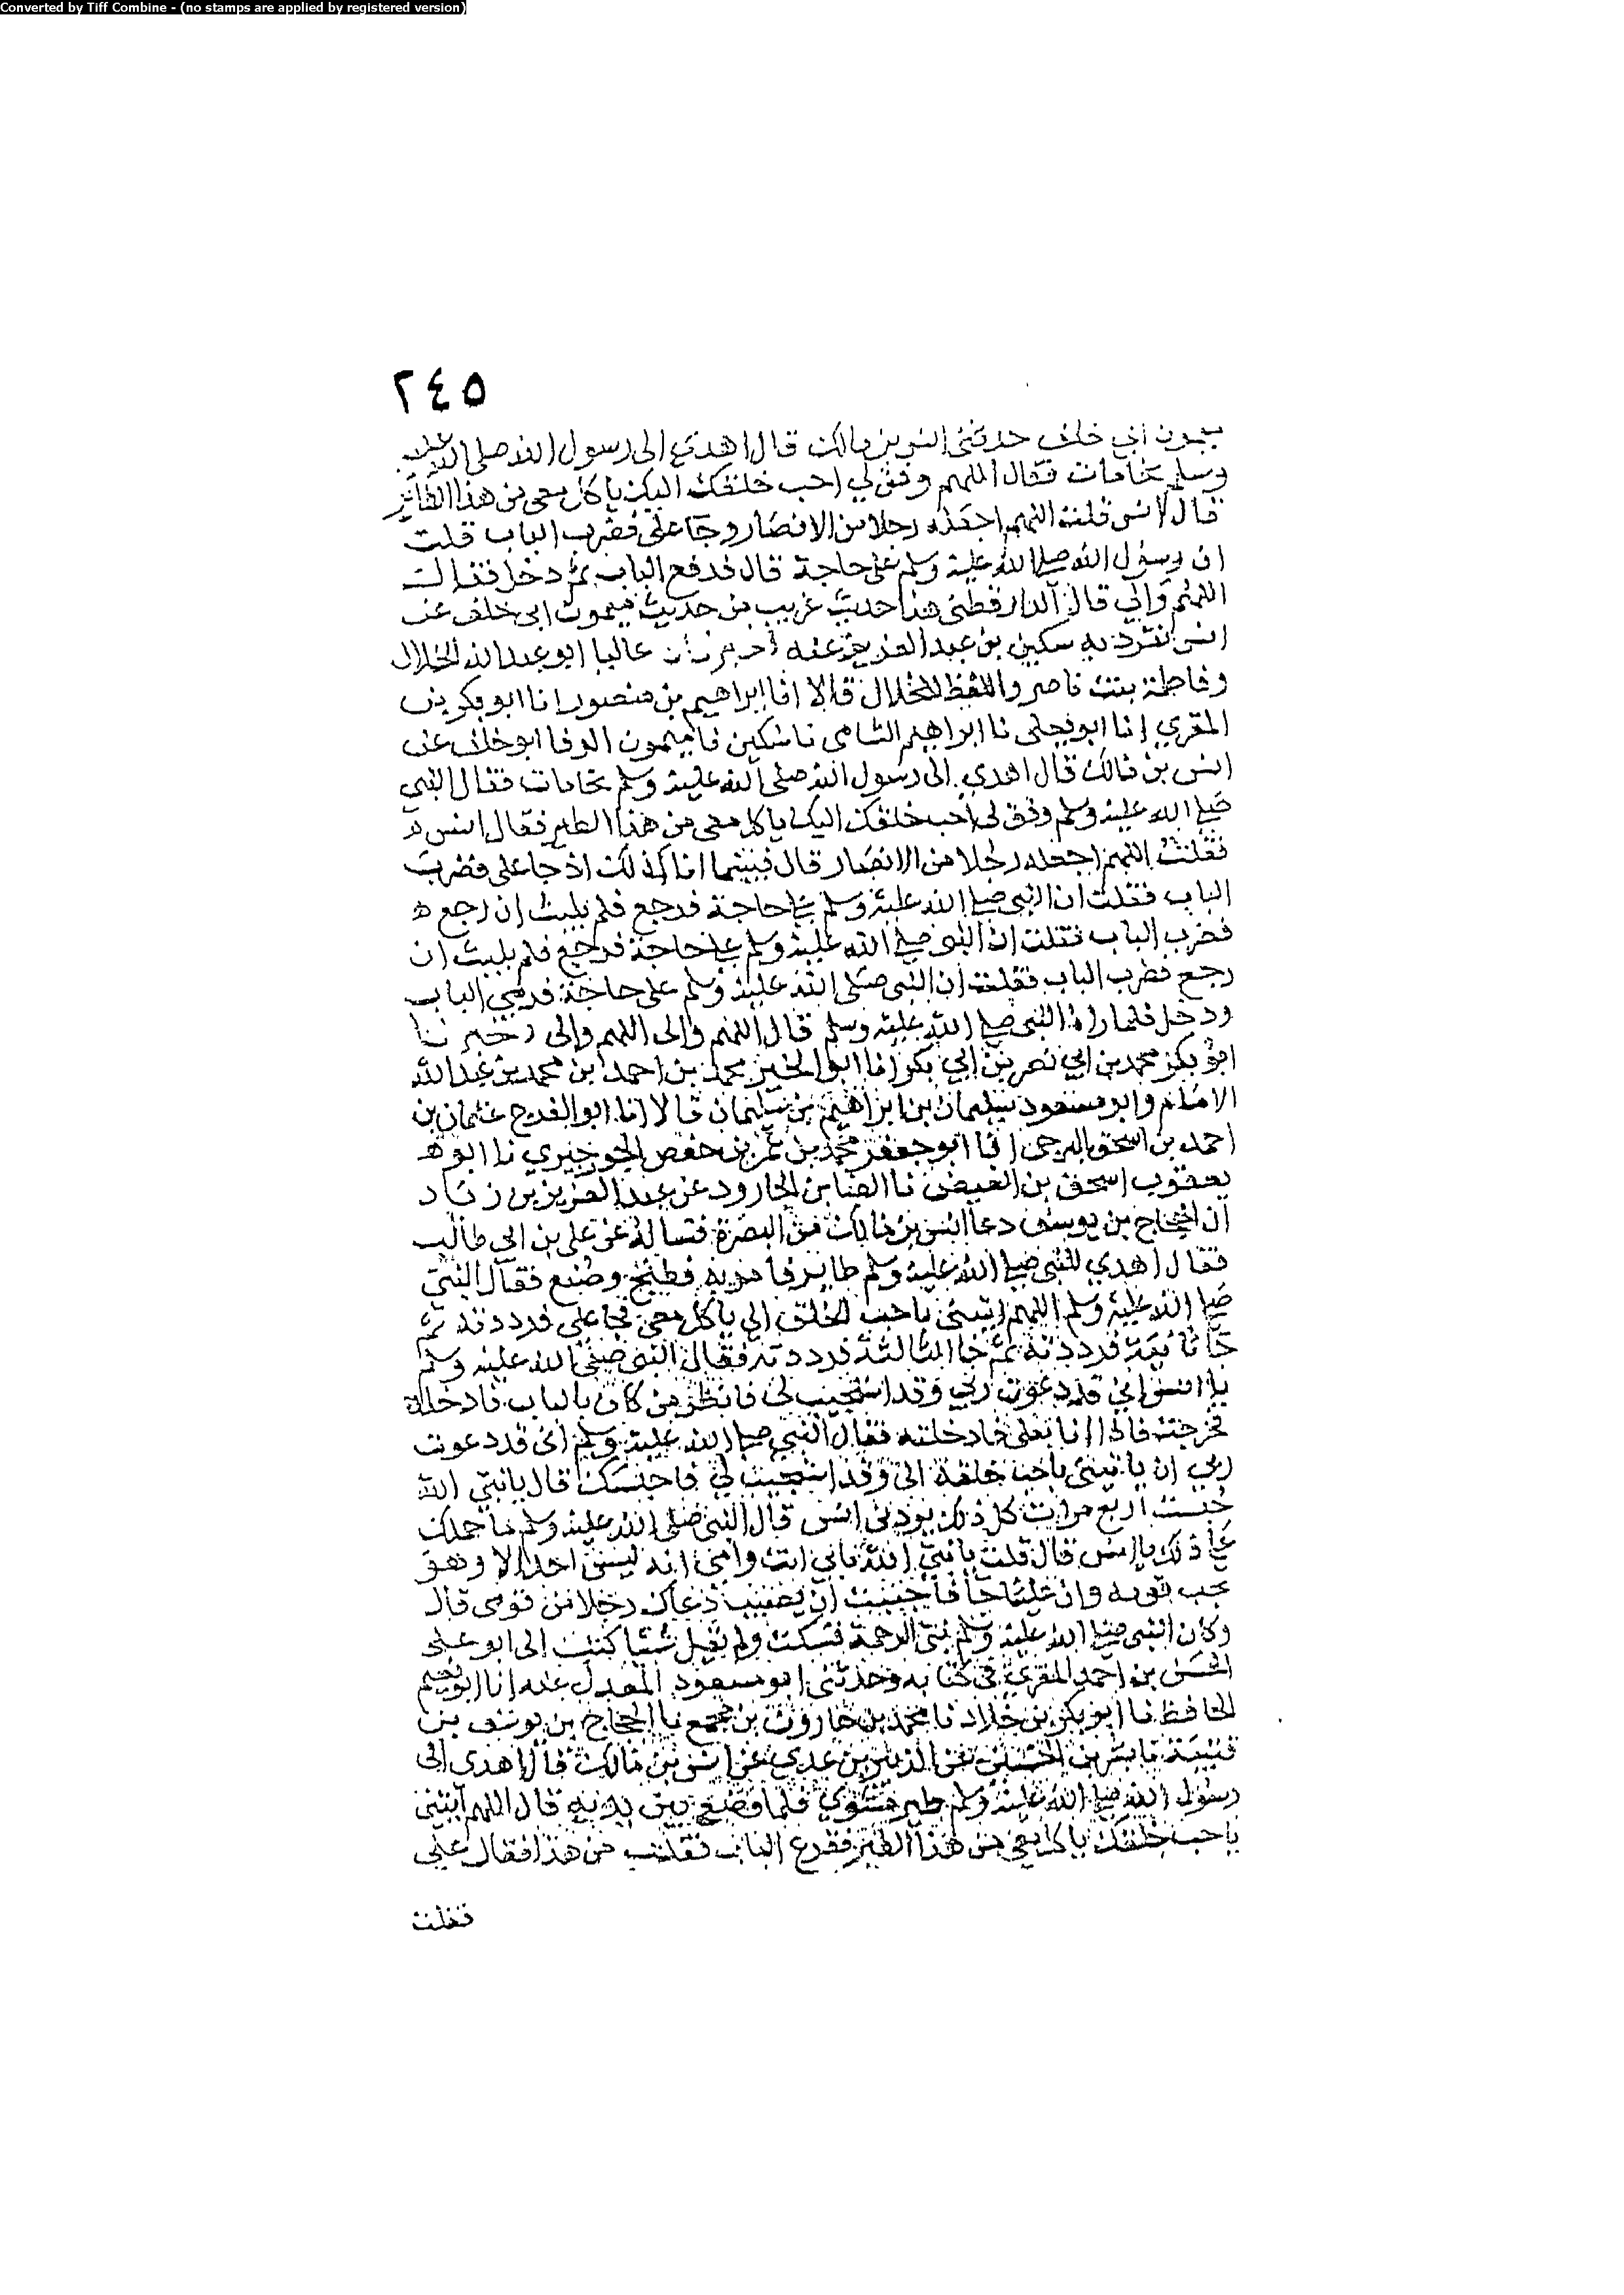 Converted by Tiff Combine - (no stamps are applied by registered version)
٢٤٥
ميمون ابي خلف حدثني انس بن مالك قال اهدي الى رسول الله صلى الله عليه
وسلم نحامات فقال اللهم وفق لي احب خلقك اليك ياكل معي من هذا الطائر
قال انس قلت اللهم اجعله رجلا من الانصار وجا على فضرب الباب قلت
ان رسول الله صلى الله عليه وسلم على حاجة قال فدفع الباب ثم دخل فقال
اللهم والي قال الدارقطني هذا حديث غريب من حديث ميمون ابي خلف عن
انس تفرد به سكين بن عبد العزيز عنه اخبرناه عاليا ابو عبد الله الخلال
وفاطمة بنت ناصر واللفظ للخلال قالا انا ابراهيم بن منصور انا ابو بكر بن
المقري انا ابو يعلى نا ابراهيم الشامي نا سكين نا ميمون الرفا ابو خلف عن
انس بن مالك قال اهدي الى رسول الله صلى الله عليه وسلم نحامات فقال النبي
صلى الله عليه وسلم وفق لي احب خلقك اليك ياكل معي من هذا الطير فقال انس
فقلت اللهم اجعله رجلا من الانصار قال فبينما انا كذلك اذ جا على فضرب
الباب فقلت ان النبي صلى الله عليه وسلم على حاجة فرجع فلم يلبث ان رجع
فضرب الباب فقلت ان النبي صلى الله عليه وسلم على حاجة فرجع فلم يلبث ان
رجع فضرب الباب فقلت ان النبي صلى الله عليه وسلم على حاجة فرمي الباب
ودخل فلما راه النبي صلى الله عليه وسلم قال اللهم والى اللهم والى اخبرنا
ابو بكر محمد بن ابي نصر بن ابي بكر انا ابو الخير محمد بن احمد بن محمد بن عبد الله
الامام وابو مسعود سليمان بن ابراهيم بن سليمان قالا انا ابو الفرج عثمان بن
احمد بن اسحق البرجي انا ابو جعفر محمد بن عمر بن حفص الجورجيري نا ابو
يعقوب اسحق بن الفيض نا المضا بن الجارود عن عبد العزيز بن زياد
ان الحجاج بن يوسف دعا انس بن مالك من البصرة فساله عن على بن ابي طالب
فقال اهدي للنبي صلى الله عليه وسلم طاير فامر به فطبخ وصنع فقال النبي
صلى الله عليه وسلم اللهم ايتني باحب الخلق الي ياكل معي فجا على فرددته ثم
جا ثانية فرددته ثم جا الثالثة فرددته فقال النبي صلى الله عليه وسلم
يا انس اني قد دعوت ربي وقد استجيب لي فانظر من كان بالباب فادخله
فخرجت فاذا انا بعلى فادخلته فقال النبي صلى الله عليه وسلم اني قد دعوت
ربي ان ياتيني باحب خلقه الى وقد استجيب لي فما حبسك قال يا نبي الله
جئت اربع مرات كل ذلك يردني انس قال النبي صلى الله عليه وسلم ما حملك
على ذلك يا انس قال قلت يا نبي الله بابي انت وامي انه ليس احد الا وهو
يحب قومه وان عليا جا فاحببت ان يصيب دعاك رجلا من قومي قال
وكان النبي صلى الله عليه وسلم نبي الرحمة فسكت ولم يقل شيئا كتب الى ابو على
الحسن بن احمد المقري في كتابه وحدثني ابو مسعود المعدل عنه انا ابو نعيم
الحافظ نا ابو بكر بن خلاد نا محمد بن هارون بن مجمع نا الحجاج بن يوسف بن
قتيبة نا بشر بن الحسين عن الزبير بن عدي عن انس بن مالك قال اهدى الى
رسول الله صلى الله عليه وسلم طير مشوي فلما وضع بين يديه قال اللهم ايتني
باحب خلقك ياكل معي من هذا الطير فقرع الباب فقلت من هذا فقال على
فقلت